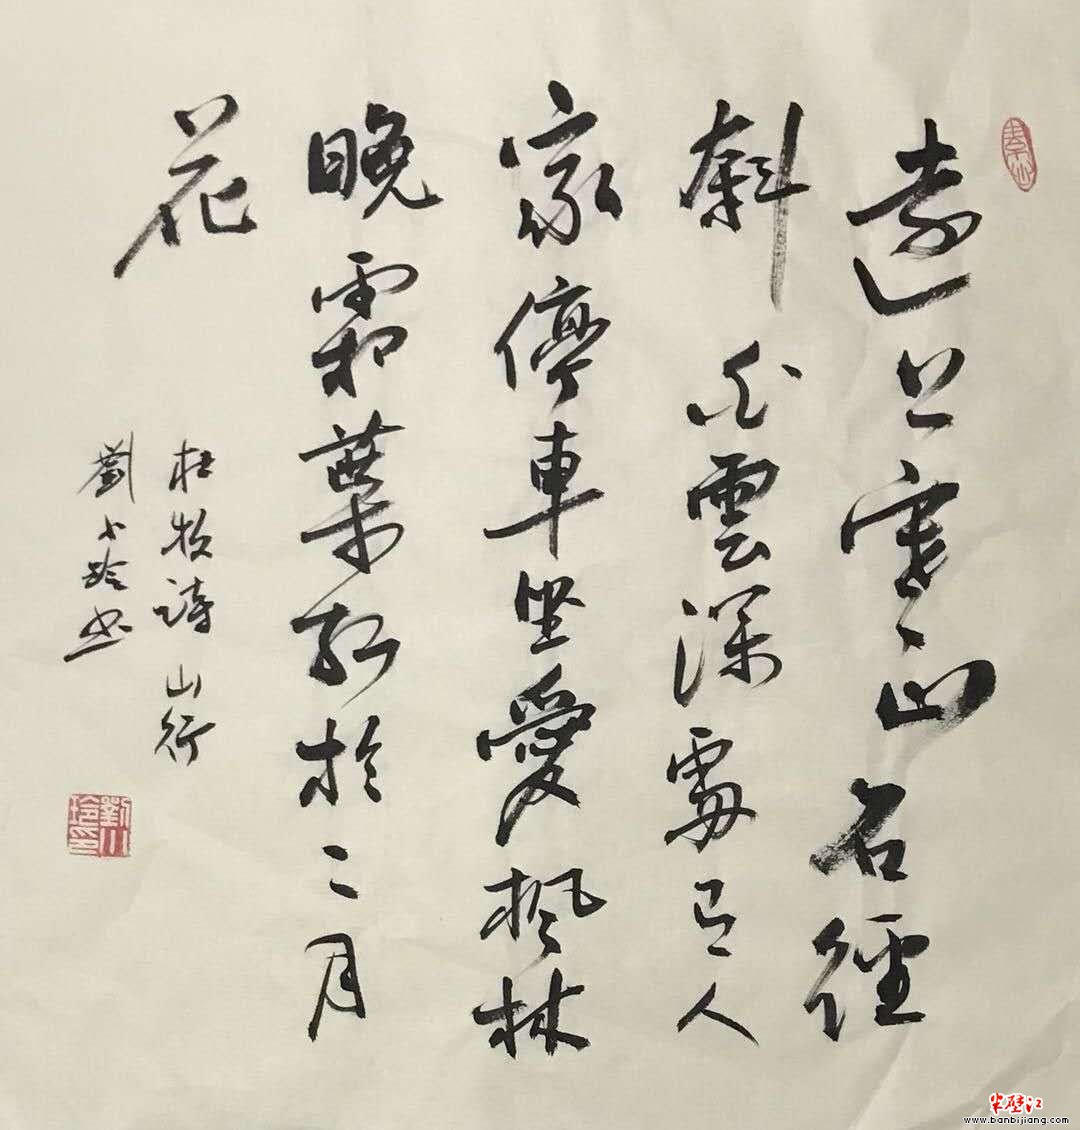 遠上寒山石徑
斜白雲深處有人
家停車坐愛楓林
晚霜葉紅於二月
花
杜牧詩山行
劉小玲书
劉小玲印
半壁江
www.banbijiang.com